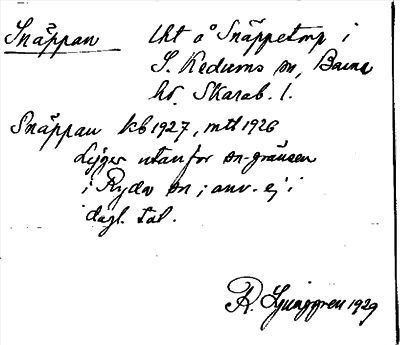 Snäppan lht å Snäppetorp i
S. Kedums sn, Barne
hd. Skarab. l.
Snäppan kb 1927, mtl 1926
Ligger utanför sn-gränsen
i Ryda sn; anv. ej i
dagl. tal.
R. Ljunggren 1929